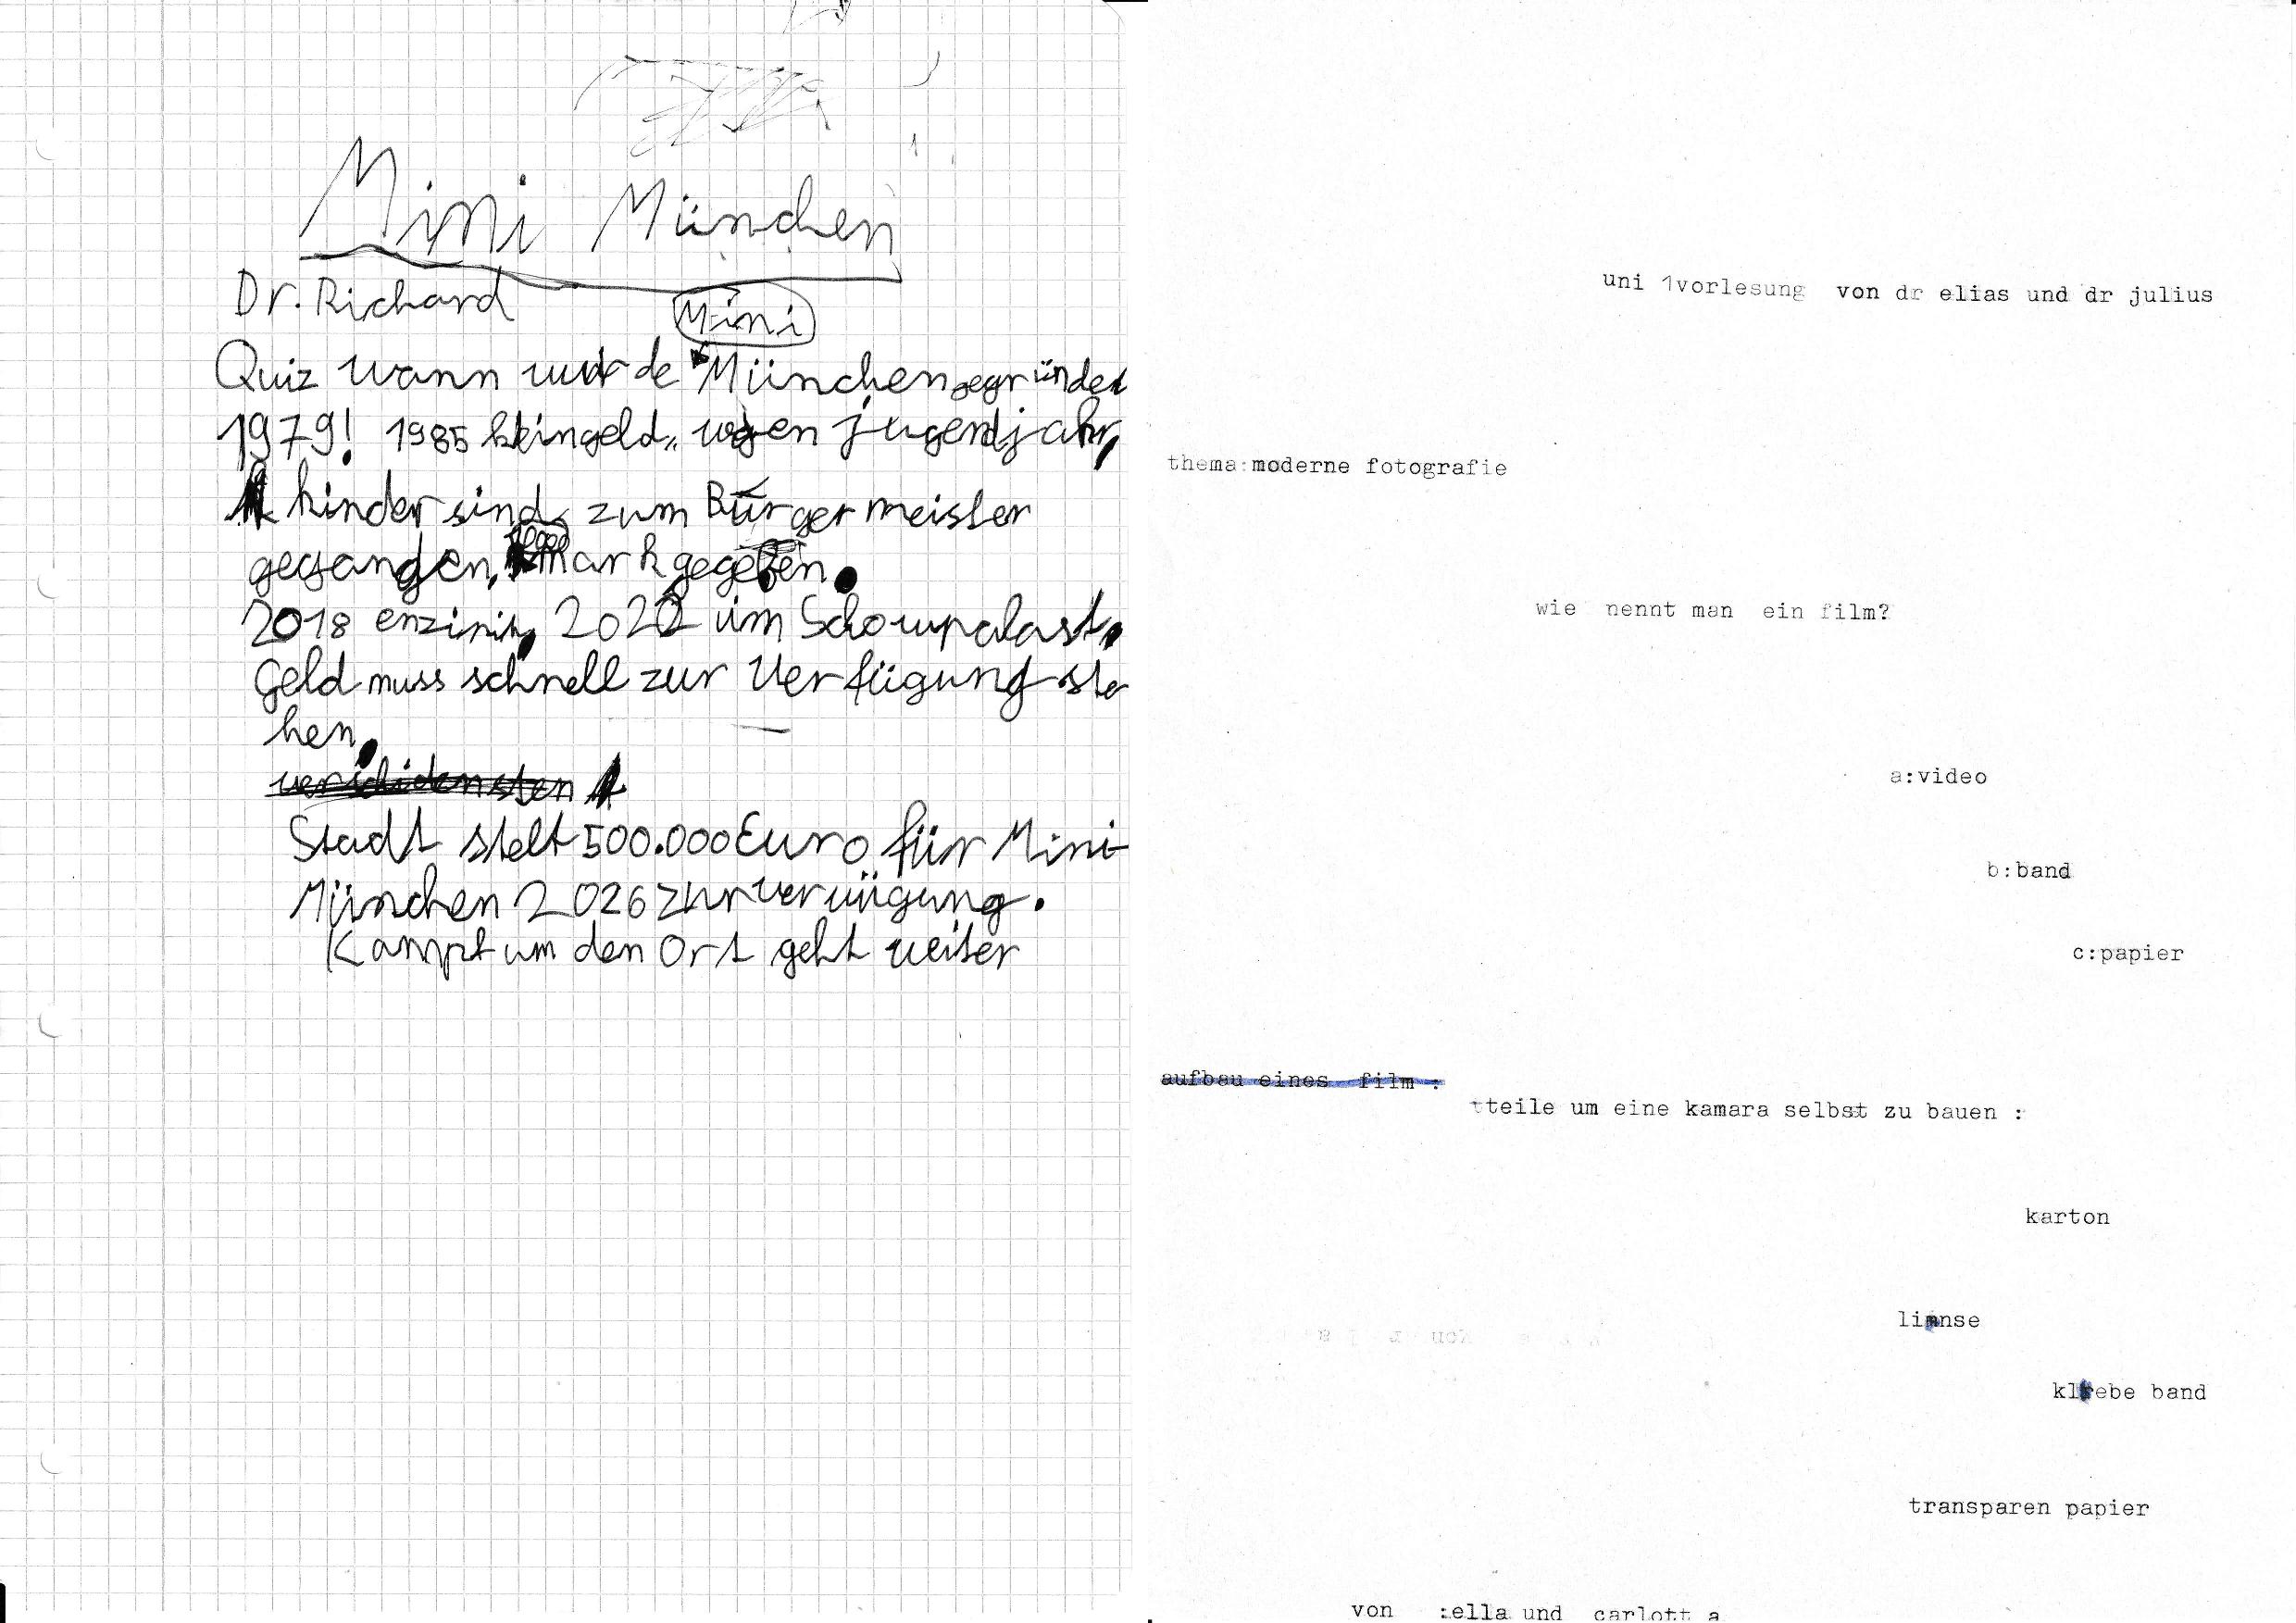 Mini München
Dr. Richard
Mini
Quiz wann wurde München gegründet
1979! 1985 kein geld,, wegen jugendjahr,
kinder sind zum Bürgermeister
gegangen, Mark gegeben.
2018 enzinit, 2022 im Schowpalast.
Geld muss schnell zur Verfügung ste
hen.
verschidensten
Stadt stelt 500.000 Euro für Mini-
München 2026 zur verüügung.
Kampf um den Ort geht weiter
uni 1vorlesung von dr elias und dr julius
thema:moderne fotografie
wie nennt man ein film?
a:video
b:band
c:papier
aufbau eines film :
tteile um eine kamara selbst zu bauen :
karton
linse
klebe band
transparen papier
von :ella und carlott a